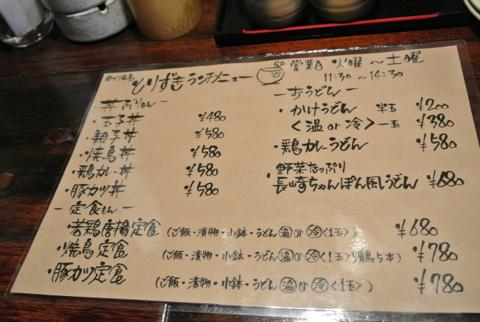 とりずきランチメニュー
営業日 火曜～土曜
11:30～14:30
丼ぶりもん
・玉子丼 ¥480
・親子丼 ¥580
・焼鳥丼 ¥580
・鶏カレー丼 ¥580
・豚カツ丼 ¥580
―定食もん
・若鶏唐揚定食(ご飯・漬物・小鉢・うどん温or冷<1玉>) ¥680
・焼鳥定食(ご飯・漬物・小鉢・うどん温or冷<1玉>焼鶏5本) ¥780
・豚カツ定食(ご飯・漬物・小鉢・うどん温or冷<1玉>) ¥780
―おうどん―
・かけうどん 半玉 ¥200
<温or冷>一玉 ¥380
・鶏カレーうどん ¥580
野菜たっぷり
長崎ちゃんぽん風うどん ¥680